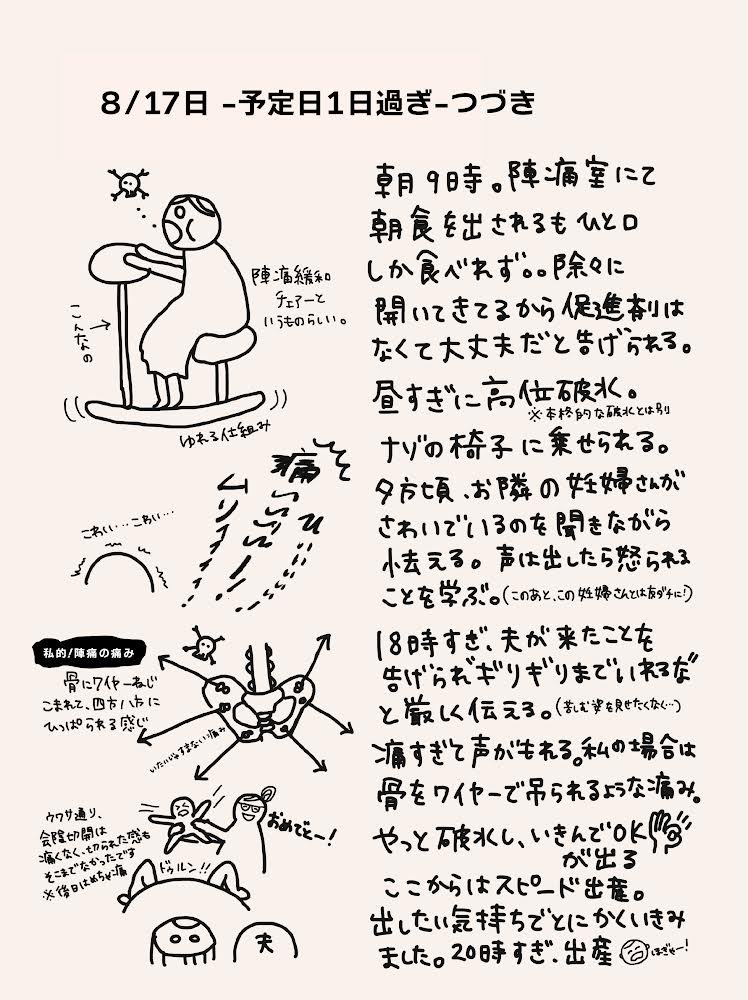 8/17日 -予定日1日過ぎ-つづき
朝9時。陣痛室にて
朝食を出されるもひと口
しか食べれず。。除々に
開いてきてるから促進剤は
なくて大丈夫だと告げられる。
昼すぎに高位破水。
※本格的な破水とは別
ナゾの椅子に乗せられる。
夕方頃、お隣の妊婦さんが
さわいでいるのを聞きながら
怯える。声は出したら怒られる
ことを学ぶ。(このあと、この妊婦さんとは友ダチに!)
18時すぎ、夫が来たことを
告げられギリギリまでいれるな"
と厳しく伝える。(苦しむ姿を見せたくなく…)
痛すぎて声がもれる。私の場合は
骨をワイヤーで吊られるような痛み。
やっと破水し、いきんでOK
が出る
ここからはスピード出産。
出したい気持ちでとにかくいきみ
ました。20時すぎ、出産
ほぎゃー!
陣痛緩和
チェアーと
いうものらしい。
こんなの
ゆれる仕組み
痛
こわい…こわい…
私的/陣痛の痛み
骨にワイヤーねじ
こまれて、四方八方に
ひっぱられる感じ
いたいじゃすまない痛み
ウワサ通り、
会陰切開は
痛くなく、切られた感も
そこまでなかったです
※後日はめちゃ痛
おめでとー!
ドゥルン!!
夫